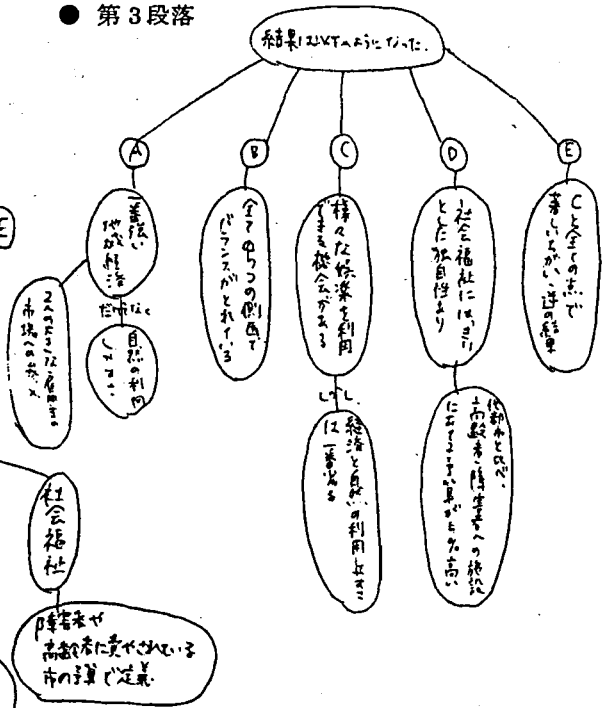 ● 第3段落
結果は以下のようになった.
A
B
C
D
E
E
一番強い
地域経済
だけでなく
自然の利用
しやすい
市場への参入
全て4つの側面で
バランスがとれている
様々な娯楽を利用
できる機会がある
しかし、
経済と自然の利用しやすさ
は一番劣る
社会福祉にはっきり
とした独自性あり
他都市と比べ、
高齢者・障害者への施設
にあてる予算が5%高い
Cと全ての点で
著しいちがい、逆の結果
社会福祉
障害者や
高齢者に費やされている
市の予算で定義